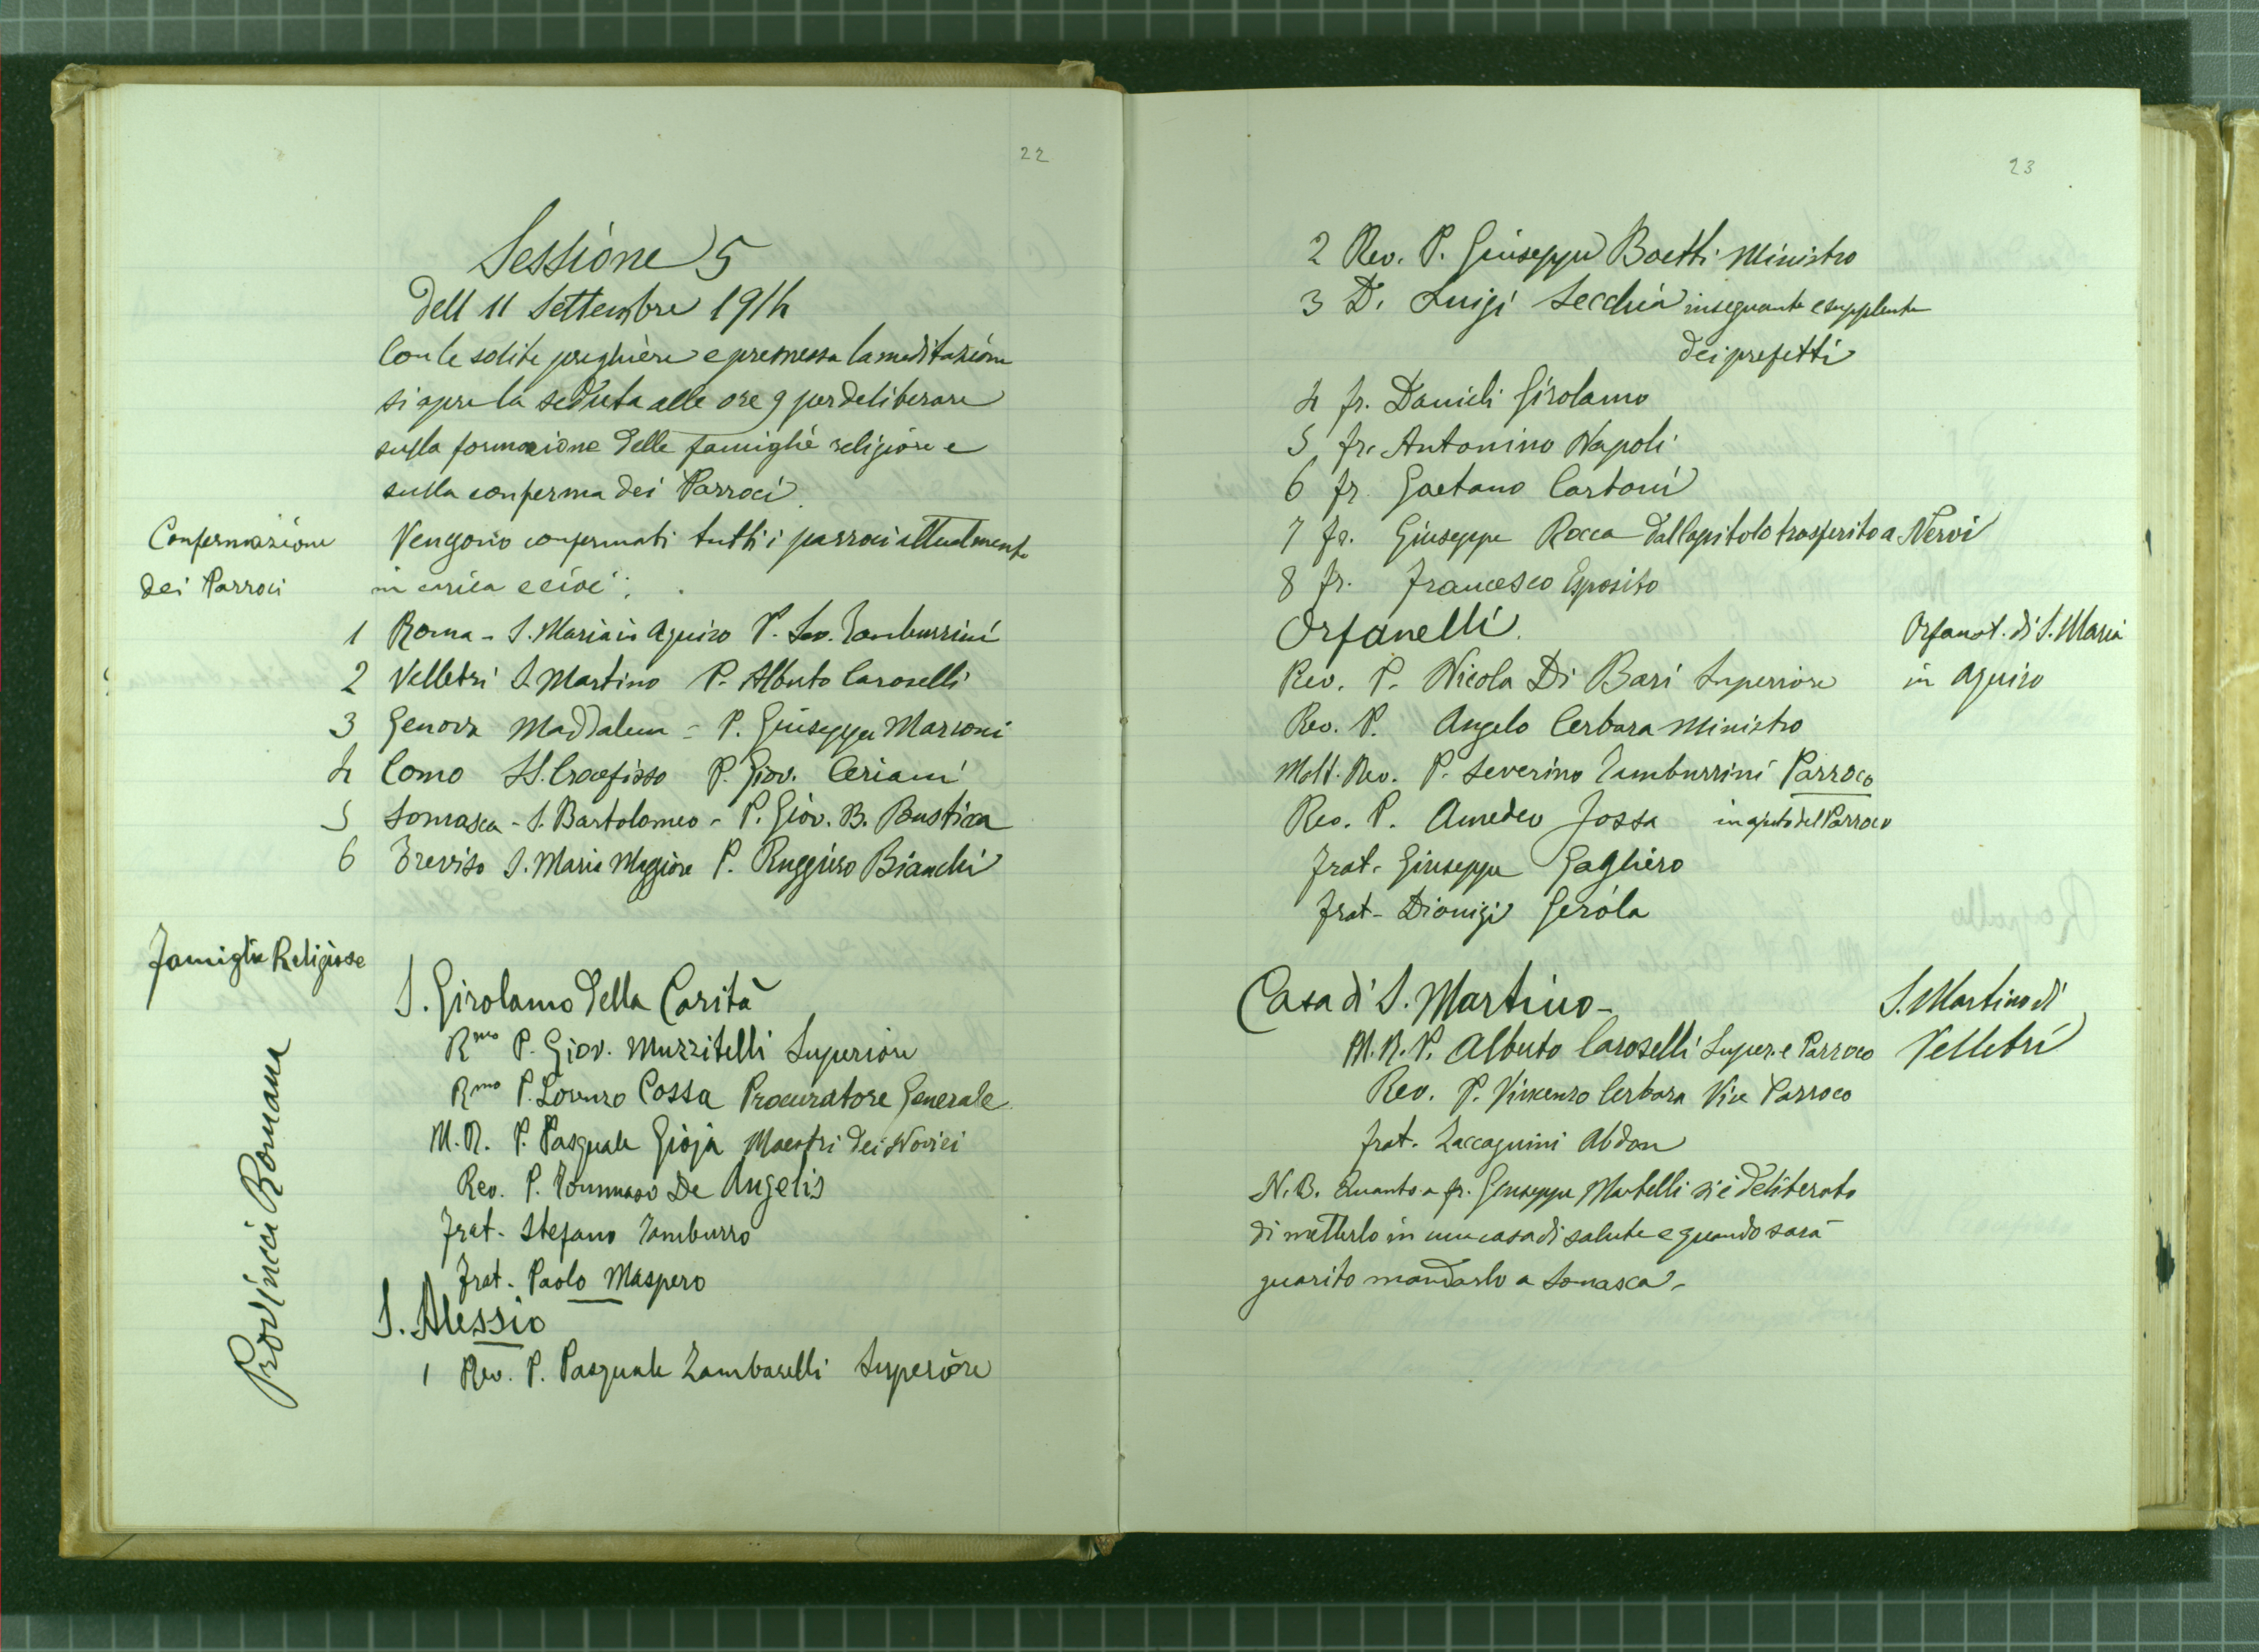 22
Sessione 5
dell 11 Settembre 1914
Con le solite preghiere e premessa la meditazione
si apre la seduta alle ore 9 per deliberare
sulla formazione delle famiglie religiose e
sulla conferma dei Parroci.
Confermazione
dei Parroci
Vengono confermati tutti i parroci attualmente
in carica e cioè:
1 Roma - S. Maria in Aquiro P. Sev. Tamburrini
2 Velletri S. Martino P. Alberto Caroselli
3 Genova Maddalena - P. Giuseppe Marconi
4 Como SS. Crocefisso P. Giov. Ceriani
5 Somasca - S. Bartolomeo - P. Giov. B.
6 Treviso S. Maria Maggiore P. Ruggiero Bianchi
Famiglie Religiose
Provincia Romana
S. Girolamo della Carità
Rmo P. Giov. Muzzitelli Superiore
Rmo P. Lorenzo Cossa Procuratore Generale
M. R. P. Pasquale Gioja Maestri dei Novizi
Rev. P. Tommaso De Angelis
Frat. Stefano Tamburro
Frat. Paolo Maspero
S. Alessio
1 Rev. P. Pasquale Zambarelli Superiore
23
2 Rev. P. Giuseppe Boetti Ministro
3 D. Luigi Secchia insegnante e supplente
dei prefetti
4 fr. Danieli Girolamo
5 fr. Antonino Napoli
6 fr. Gaetano Cartoni
7 Fr. Giuseppe Rocca dal Capitolo trasferito a Nervi
8 Fr. Francesco Esposito
Orfanelli.
Orfanot. di S. Maria
in Aquiro
Rev. P. Nicola Di Bari Superiore
Rev. P. Angelo Cerbara Ministro
Molt. Rev. P. Severino Tamburrini Parroco
Rev. P. Amedeo Jossa in ajuto del Parroco
Frat. Giuseppe Gagliero
Frat. Dionigi Gerola
Casa di S. Martino -
S. Martino di
Velletri
M. R. P. Alberto Caroselli Super. e Parroco
Rev. P. Vincenzo Cerbara Vice Parroco
Frat. Zaccagnini Abdon
N. B. Quanto a fr. Giuseppe Martelli si è deliberato
di metterlo in una casa di salute e quando sarà
guarito mandarlo a Somasca -